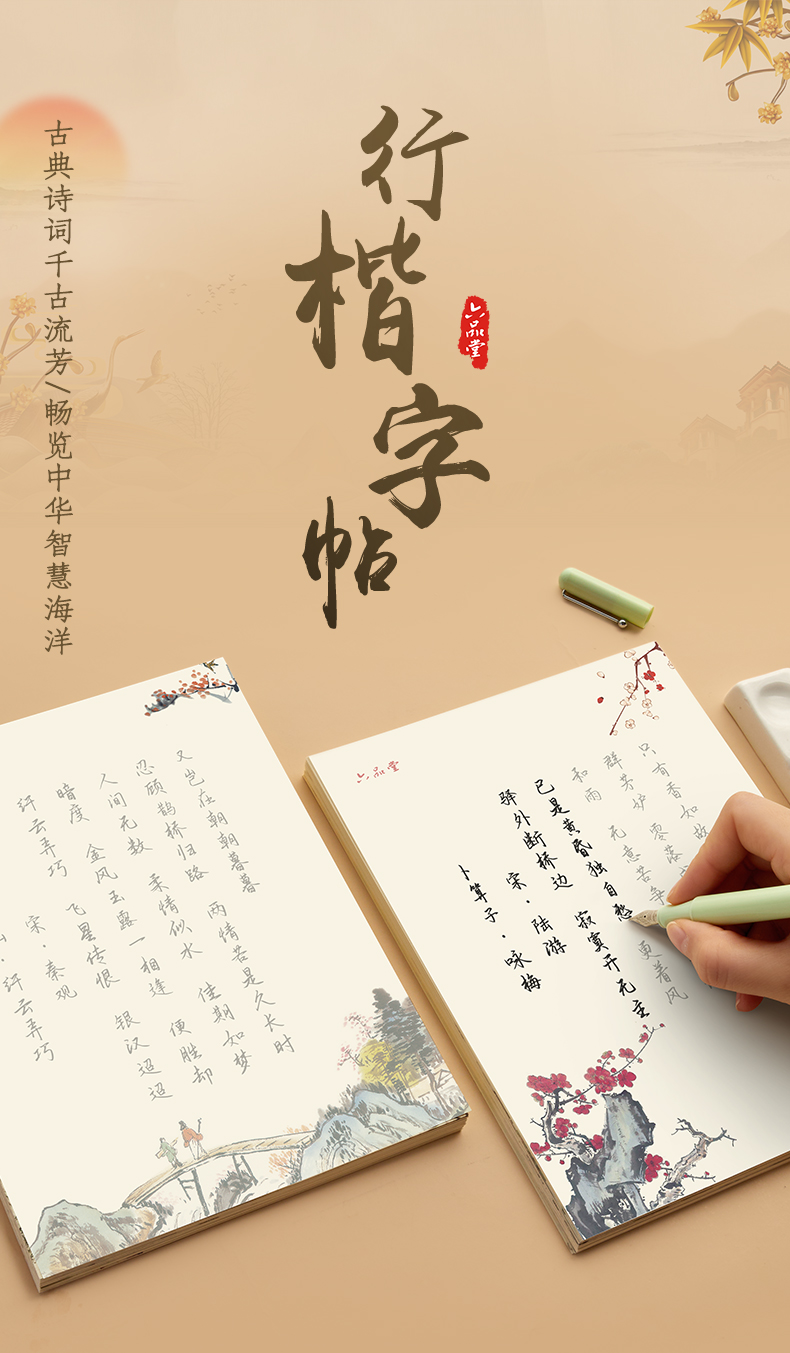 行楷字帖
六品堂
古典诗词千古流芳/畅览中华智慧海洋
·纤云弄巧
宋·秦观
纤云弄巧 飞星传恨 银汉迢迢
暗度 金风玉露一相逢 便胜却
人间无数 柔情似水 佳期如梦
忍顾鹊桥归路 两情若是久长时
又岂在朝朝暮暮
六品堂
卜算子·咏梅
宋·陆游
驿外断桥边 寂寞开无主
已是黄昏独自愁 更着风
和雨 无意苦争
群芳妒 零落
只有香如故